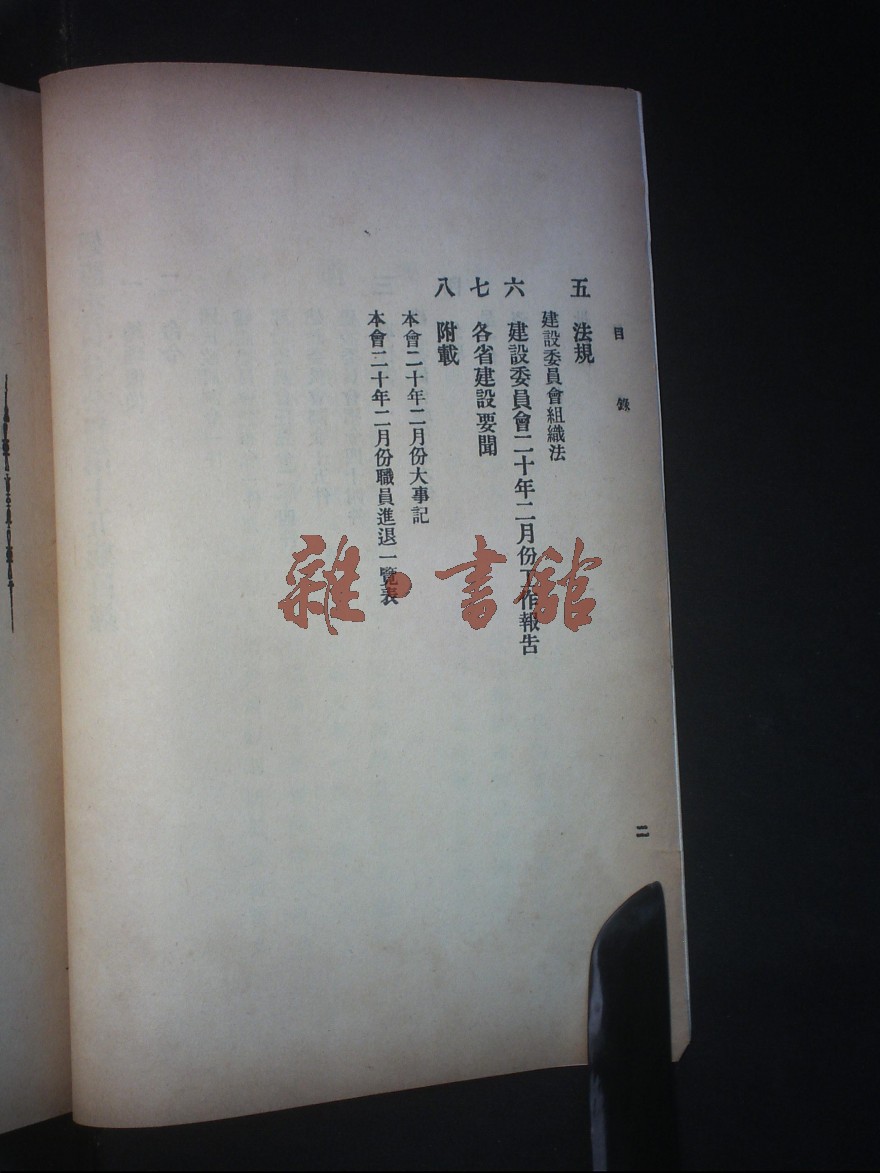 目錄
五 法規
建設委員會組織法
六 建設委員會二十年二月份工作報告
七 各省建設要聞
八 附載
本會二十年二月份大事記
本會二十年二月份職員進退一覽表
二
雜·書館